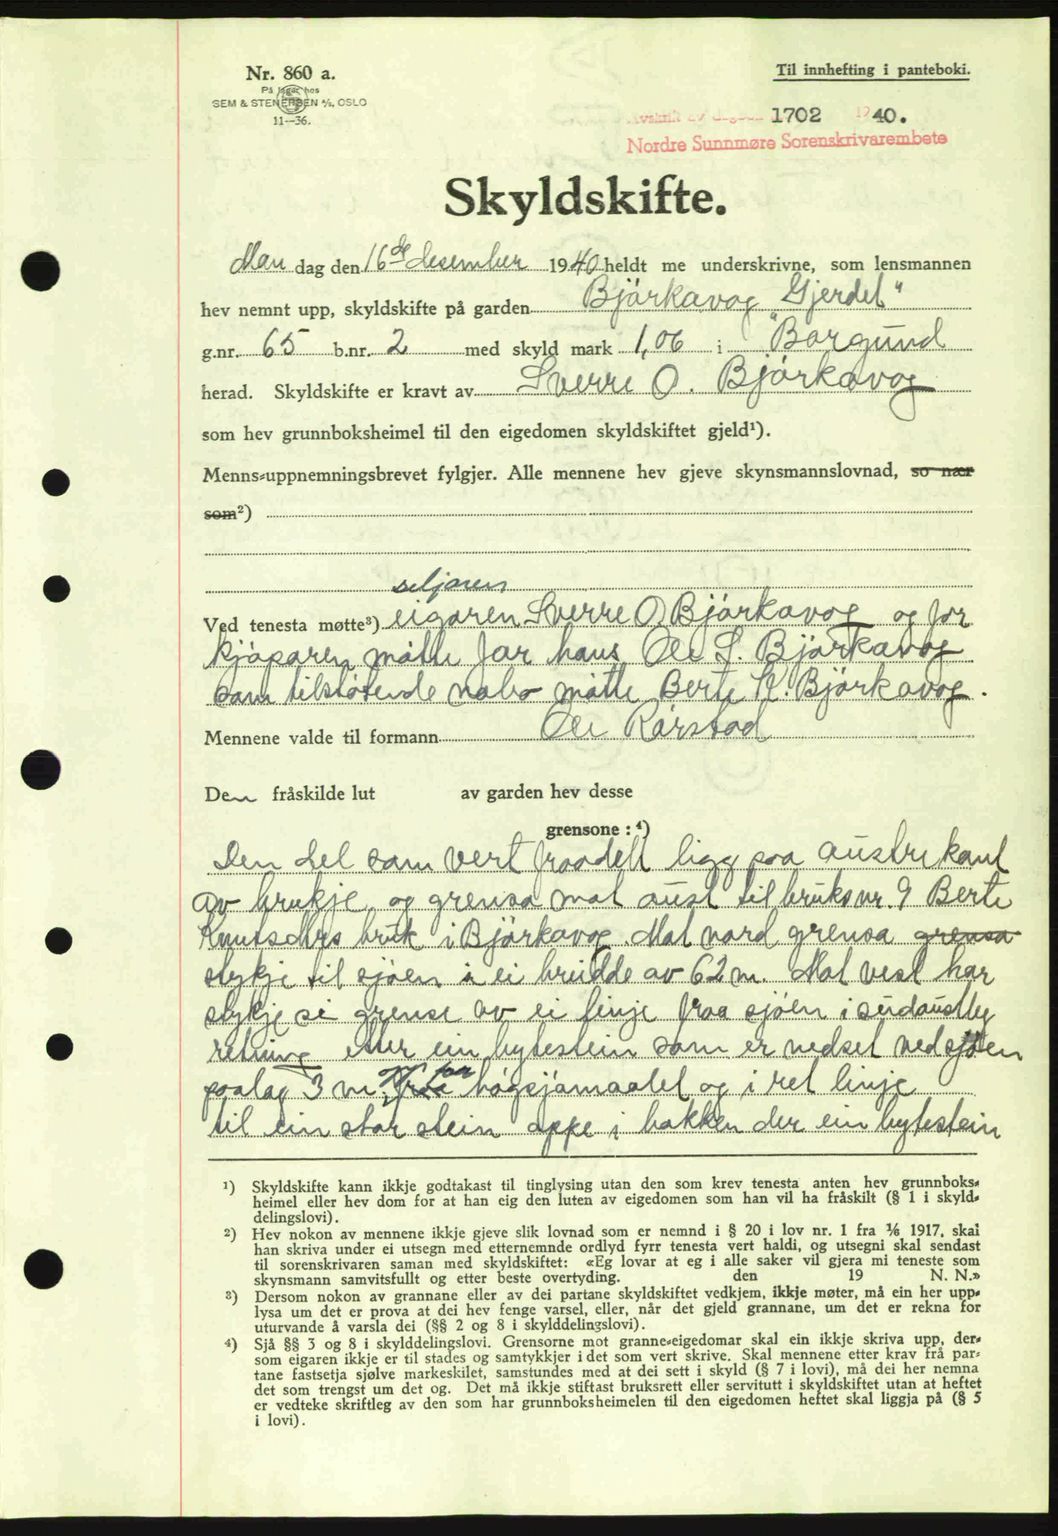 Nr. 860 a.
På lager hos
SEM & STENERSEN A/S, OSLO
11—36.
Til innhefting i panteboki.
Avskrift av dagbok 1702 1940.
Nordre Sunnmøre Sorenskrivarembete
Skyldskifte.
Man dag den 16de desember 1940 heldt me underskrivne, som lensmannen
hev nemnt upp, skyldskifte på garden Bjørkavog "Gjerdet"
g.nr. 65 b.nr. 2 med skyld mark 1,06 i Borgund
herad. Skyldskifte er kravt av Sverre O. Bjørkavog
som hev grunnboksheimel til den eigedomen skyldskiftet gjeld¹).
Menns-uppnemningsbrevet fylgjer. Alle mennene hev gjeve skynsmannslovnad, so nær
som²)
seljaren
Ved tenesta møtte³) eigaren Sverre O Bjørkavog og for
kjøparen møtte far hans Ole S. Bjørkavog
som tilstøtende nabo møtte Berte K. Bjørkavog.
Mennene valde til formann Ole Rørstad
Den fråskilde lut av garden hev desse
grensone: ⁴)
Den del som vert fraadelt ligg paa austre kant
av brukje og grensa mot aust til bruksnr. 9 Berte
Knutsdtrs bruk i Bjørkavog. Mot nord grensa grensa
stykje til sjøen i ei breidde av 62 m. Mot vest har
stykje si grense av ei linje fraa sjøen i sudaustleg
retning etter ein bytestein som er nedset ved sjøen
paalag 3 m. fraa høgsjømaalet og i ret linje
til ein stor stein oppe i bakken der ein bytestein
¹) Skyldskifte kann ikkje godtakast til tinglysing utan den som krev tenesta anten hev grunnboks-
heimel eller hev dom for at han eig den luten av eigedomen som han vil ha fråskilt (§ 1 i skyld-
delingslovi).
²) Hev nokon av mennene ikkje gjeve slik lovnad som er nemnd i § 20 i lov nr. 1 fra ⅙ 1917, skal
han skriva under ei utsegn med etternemnde ordlyd fyrr tenesta vert haldi, og utsegni skal sendast
til sorenskrivaren saman med skyldskiftet: «Eg lovar at eg i alle saker vil gjera mi teneste som
skynsmann samvitsfullt og etter beste overtyding. den 19 N. N.»
³) Dersom nokon av grannane eller av dei partane skyldskiftet vedkjem, ikkje møter, må ein her upp-
lysa um det er prova at dei hev fenge varsel, eller, når det gjeld grannane, um det er rekna for
uturvande å varsla dei (§§ 2 og 8 i skylddelingslovi).
⁴) Sjå §§ 3 og 8 i skylddelingslovi. Grensorne mot granne-eigedomar skal ein ikkje skriva upp, der-
som eigaren ikkje er til stades og samtykkjer i det som vert skrive. Skal mennene etter krav frå par-
tane fastsetja sjølve markeskilet, samstundes med at dei sett i skyld (§ 7 i lovi), må dei her nemna
det som trengst um det og. Det må ikkje stiftast bruksrett eller servitutt i skyldskiftet utan at heftet
er vedteke skriftleg av den som har grunnboksheimelen til den eigedomen heftet skal liggja på (§ 5
i lovi).